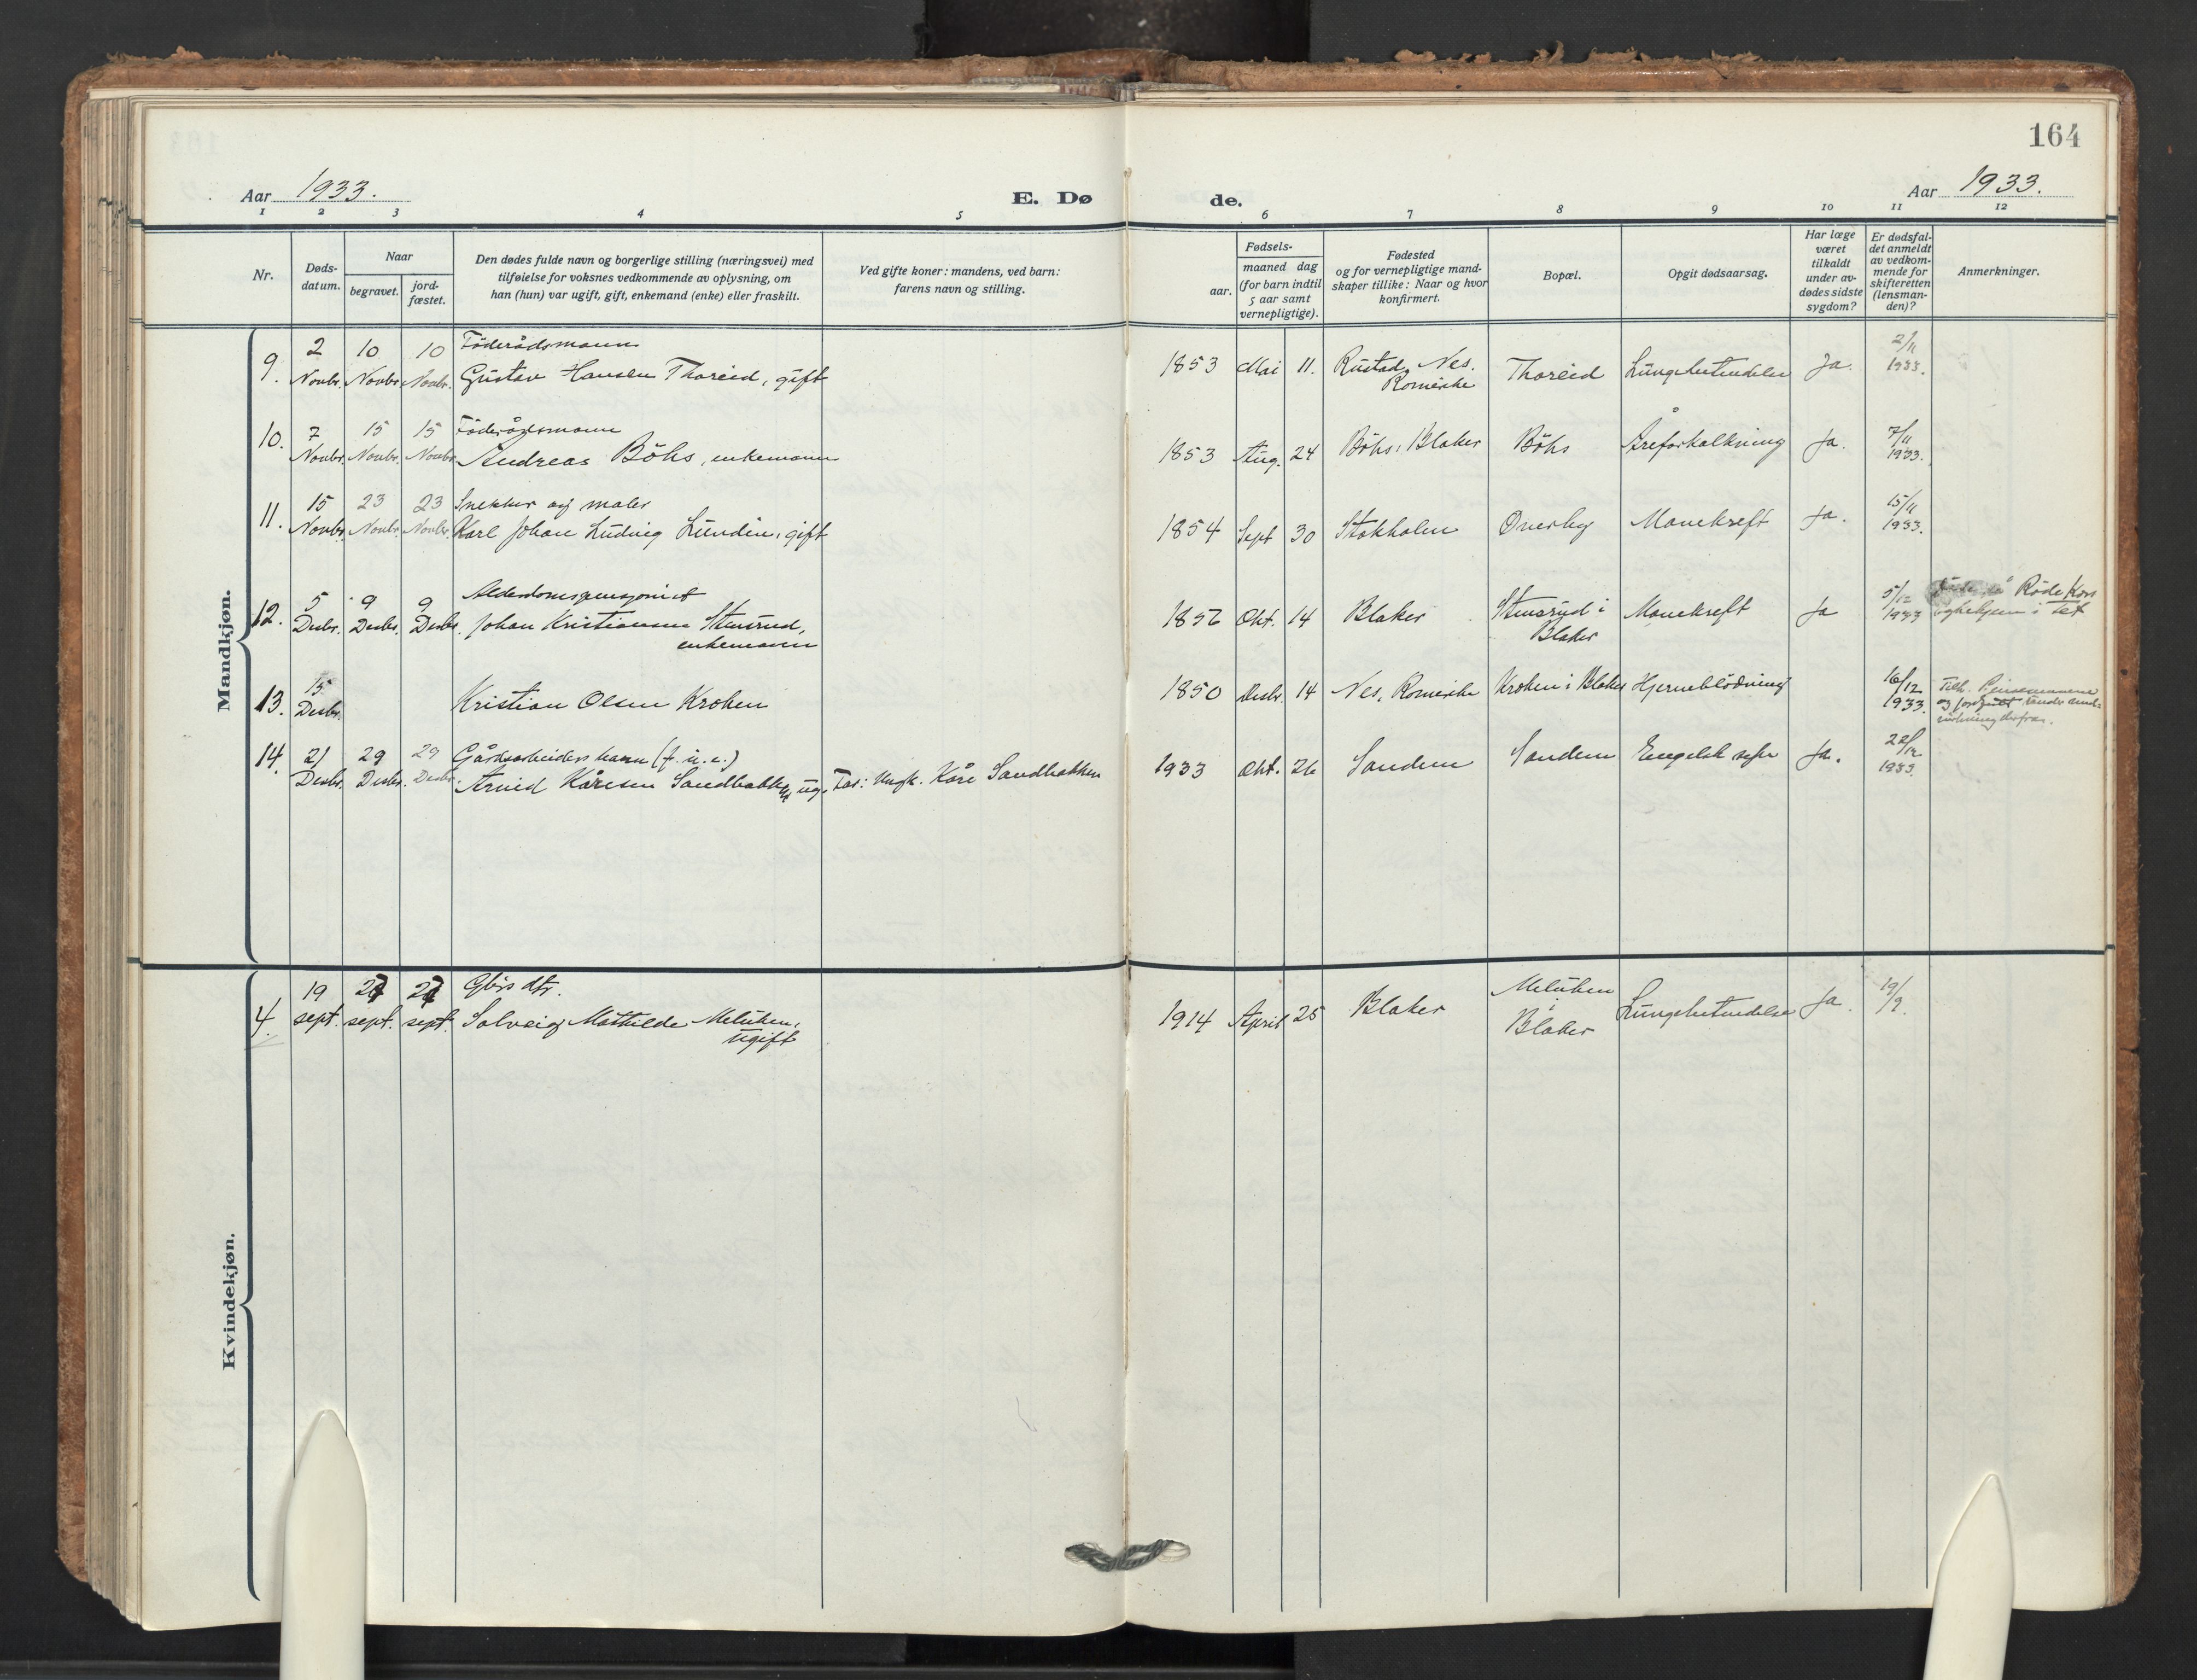 164
Aar 1933.
E. Dø
de.
Aar 1933.
1 2 3 4 5 6 7 8 9 10 11 12
Nr.
Døds-
datum.
Naar
begravet.
jord-
fæstet.
Den dødes fulde navn og borgerlige stilling (næringsvei) med
tilføielse for voksnes vedkommende av oplysning, om
han (hun) var ugift, gift, enkemand (enke) eller fraskilt.
Ved gifte koner: mandens, ved barn:
farens navn og stilling.
Fødsels-
aar.
maaned dag
(for barn indtil
5 aar samt
vernepligtige).
Fødested
og for vernepligtige mand-
skaper tillike: Naar og hvor
konfirmert.
Bopæl.
Opgit dødsaarsag.
Har læge
været
tilkaldt
under av-
dødes sidste
sygdom?
Er dødsfal-
det anmeldt
av vedkom-
mende for
skifteretten
(lensman-
den)?
Anmerkninger.
Mandkjøn.
2 10 10 Föderådsmann 2/11
9. Novbr. Novbr. Novbr. Gustav Hansen Thoreid, gift 1853 Mai 11. Rustad, Nes. Thoreid Lungebetendelse Ja. 1933.
Romerike
7 15 15 Föderådsmann 7/11
10. Novbr. Novbr. Novbr. Andreas Böhs, enkemann 1853 Aug. 24 Böhs, Blaker Böhs Åreforkalkning Ja. 1933.
15 23 23 Snekker og maler 15/11
11. Novbr. Novbr. Novbr. Karl Johan Ludvig Lundin, gift 1854 Sept 30 Stokholm Overby Mavekreft Ja. 1933.
5 9 9 Alderdomspensjonist 5/12 Röde Kors
12. Desbr. Desbr. Desbr. Johan Kristiansen Stensrud, 1856 Okt. 14 Blaker Stensrud i Mavekreft Ja 1933 sykehjem i
enkemann Blaker
15 16/12
13. Desbr. Kristian Olsen Krohen 1850 Desbr. 14 Nes, Romerike Krohen i Blaker Hjerneblödning 1933. Tilh. Pinsevennene
og
21 29 29 Gårdsarbeiders barn (f. u. e.) 22/12
14. Desbr. Desbr. Desbr. Arvid Kåresen Sandbakken, ug. Far: Ungk. Kåre Sandbakken 1933 Okt. 26 Sandem Sandem Engelsk syke Ja. 1933.
Kvindekjøn.
19 27 27 Gbrs dtr. 19/9.
4. sept. sept. sept. Solveig Mathilde Melüken, 1914 April 25 Blaker Melüken Lungebetendelse Ja.
ugift i
Blaker